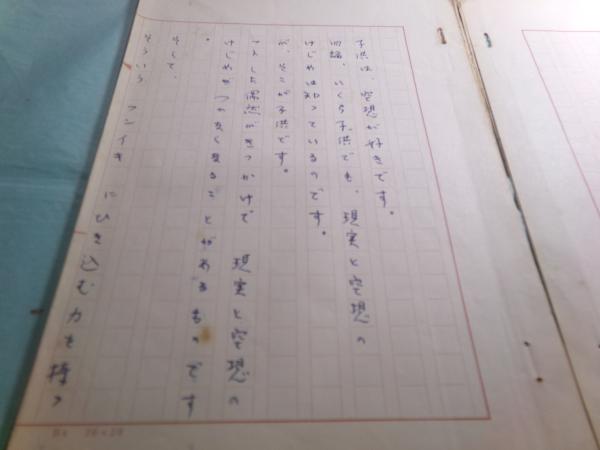 子供は、空想が好きです。
勿論、いくら子供でも、現実と空想の
けじめは知っているのです。
が、そこが子供です。
一寸した偶然がきっかけで 現実と空想の
けじめが つかなくなることがあるものです
。
そして、
そういう フンイキ にひき込む力を持つ
20×20